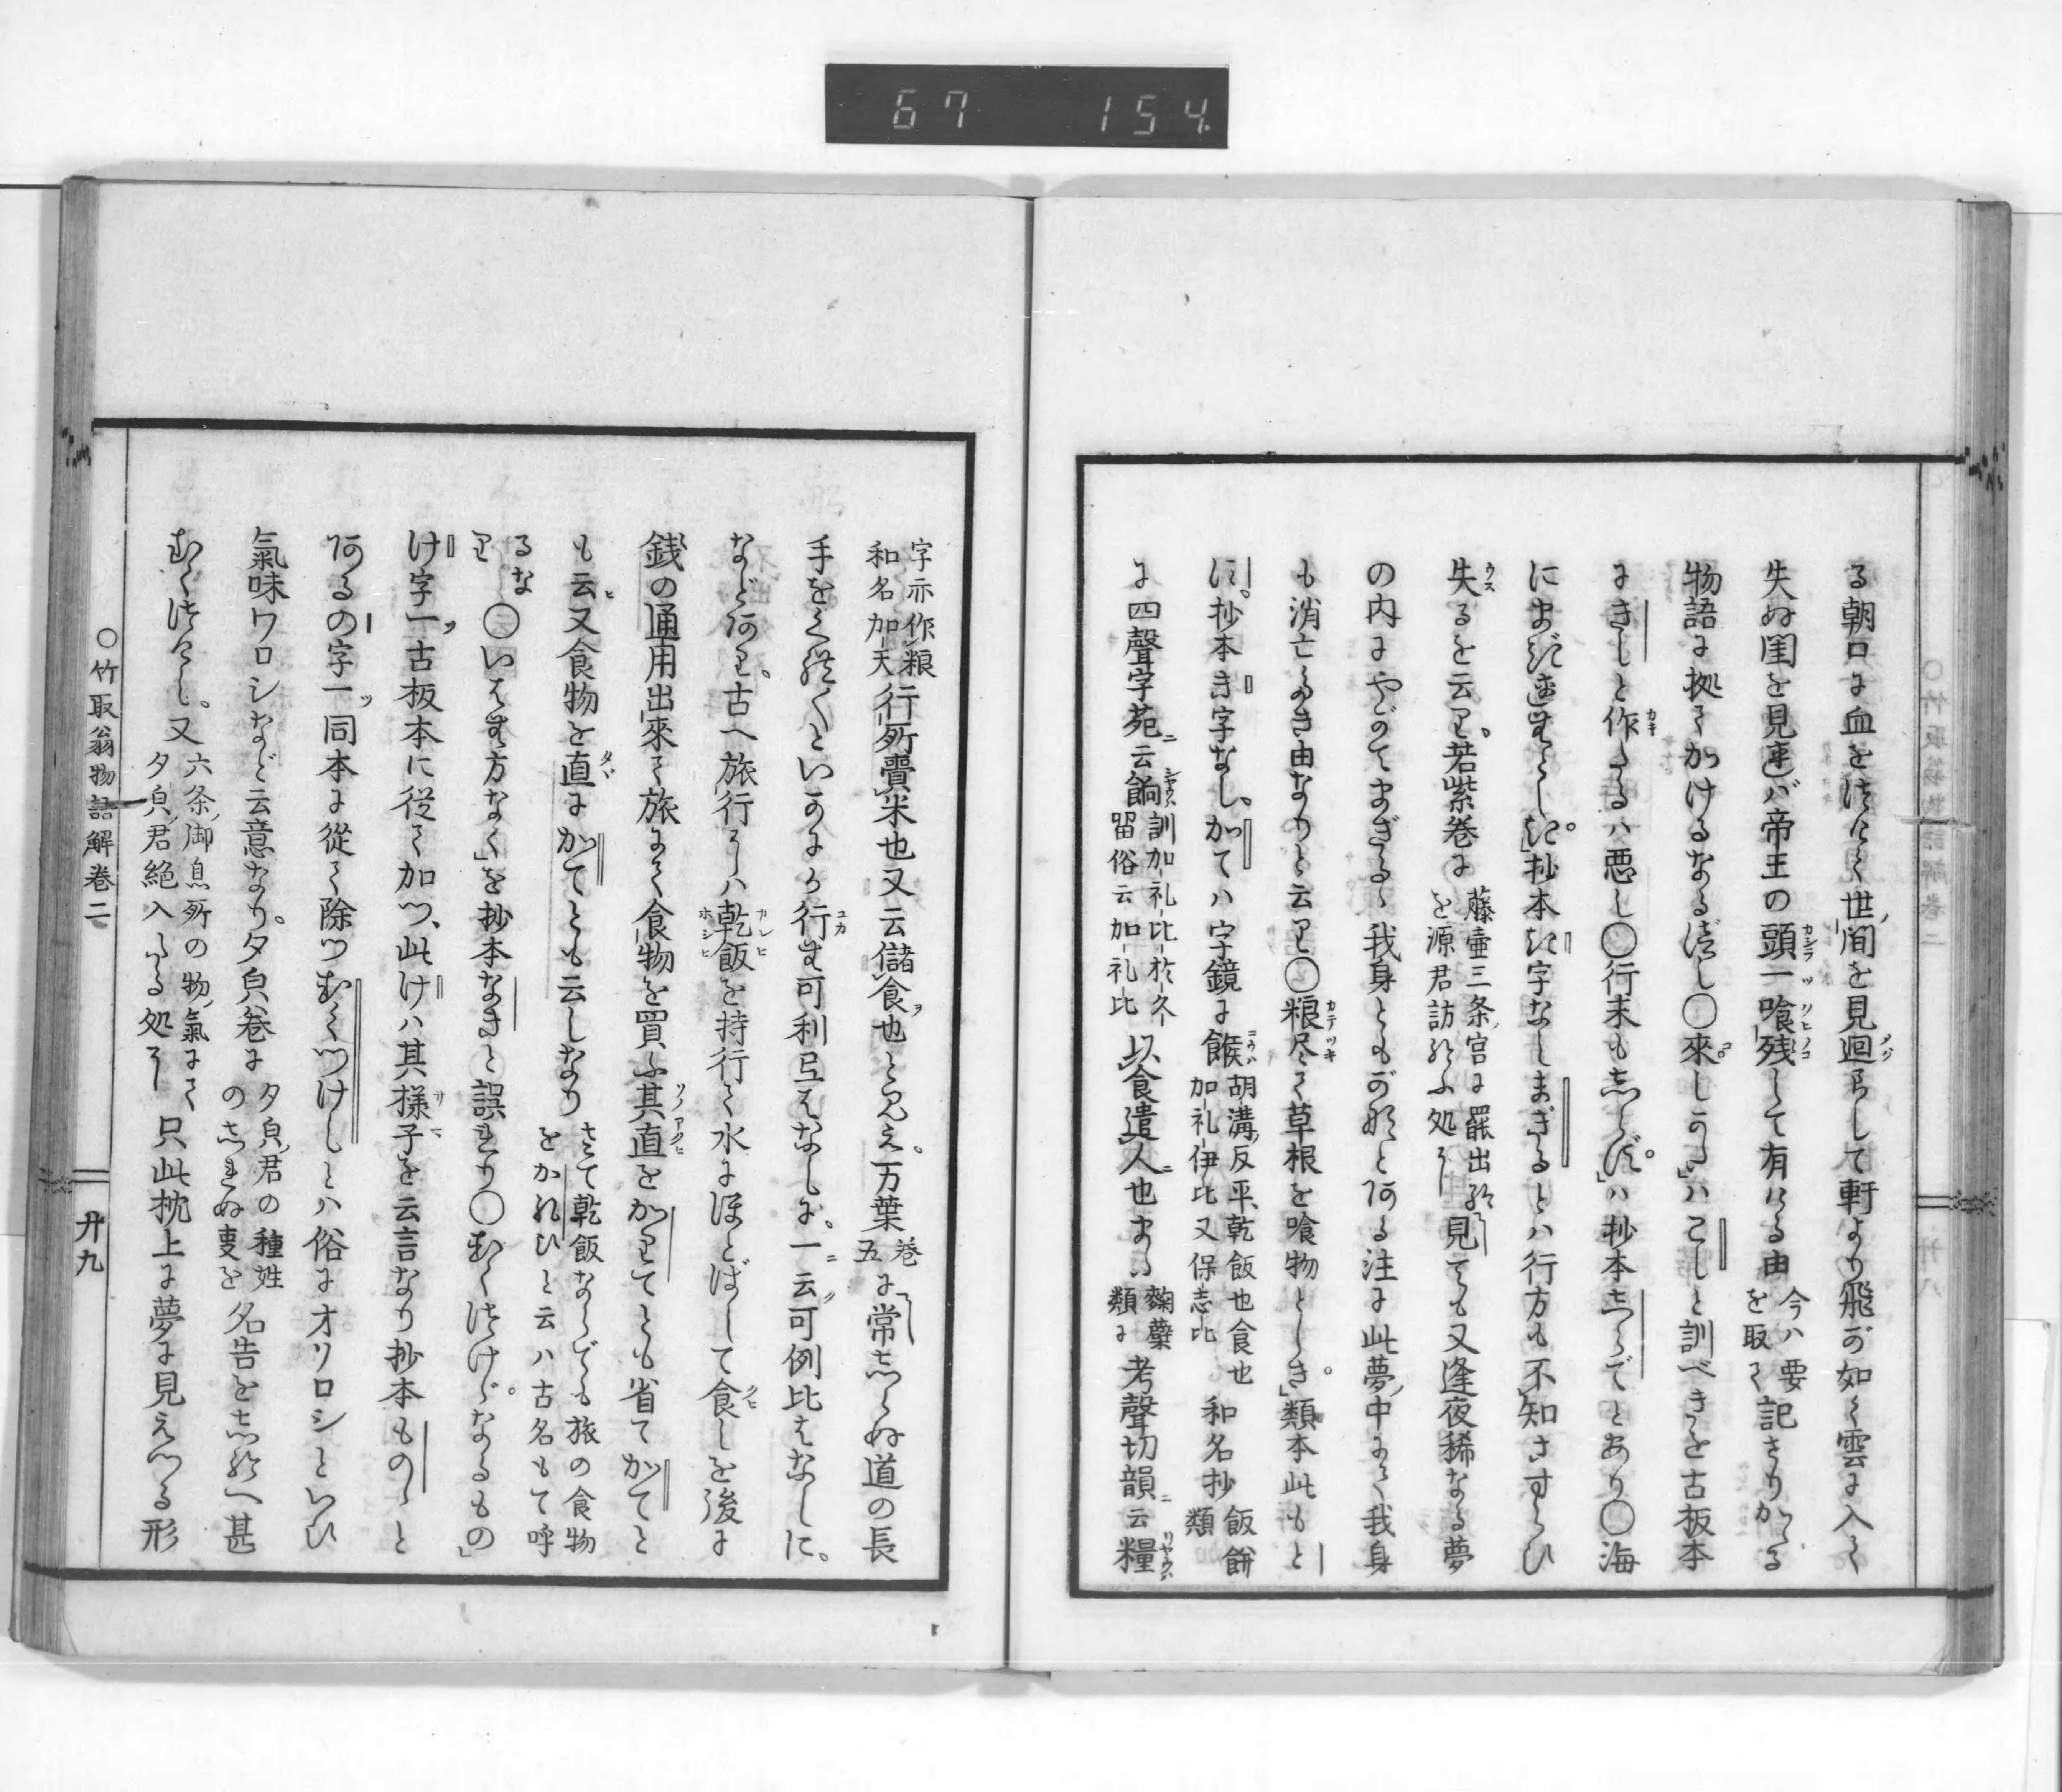 67 154.
る朝口に血をつけて世ノ間を見廻らして軒より飛が如く雲に入て
失ぬ閨を見連バ帝王の頭一喰残して有ける由
今ハ要
を取て
記さりかゝる
物語に拠てかけるなるべし〇來しかたハこしと訓べきを古板本
にきしと作たるハ悪し〇行末もしらずハ抄本しらでとあり〇海
にまぎれむとし抄本き字なしまぎるとハ行方も不知さすらひ
失るを云り。若紫巻に
藤壷三条ノ宮に罷出給
を源君訪給ふ処に
見ても又逢夜稀なる夢
の内にやがてまぎるゝ我身ともがなとある注に此夢ノ中にて我身
も消亡べき由なりと云り〇粮尽て草根を喰物としき。類本此もと
に。抄本き字なし、かてハ字鏡に餱
胡溝ノ反平、乾飯也食也
加礼伊比又保志比
和名抄
飯餅
類
に四聲字苑ニ云餉
訓加礼比於久
留俗云加礼比
以食遣人ニ也また
麹糵
類に
考聲切韻ニ云糧
字示作粮
和名加天
行所賷米也又云儲食也と見え。万葉
巻
五
に常しらぬ道の長
手をくれ〳〵といかにか行む可利弖はなしに。一ニ云可例比はなしに。
などあり。古へ旅行にハ乾飯を持行て水にほとばして食しを後に
銭の通用出來て旅にて食物を買ふ其直をかりてとも省てかてと
も云又食物を直にかてとも云しなり
さて乾飯ならでも旅の食物
をかれひと云ハ古名もて呼
るな
り
〇いはむ方なくを抄本なきと誤れり〇むくつけゞなるもの
け字一ツ古板本に従て加つ、此けハ其様子を云言なり抄本ものゝと
あるの字一ツ同本に從て除つむくつけしとハ俗にオソロシといひ
氣味ワロシなど云意なり。夕㒵巻に
夕㒵ノ君の種姓
のしれぬ叓を
名告をし給へ甚
むくつけし。又
六条ノ御息所の物ノ氣にて
夕㒵ノ君絶入たる処に
只此枕上に夢に見えつる形
〇竹取翁物語解巻二
廾九